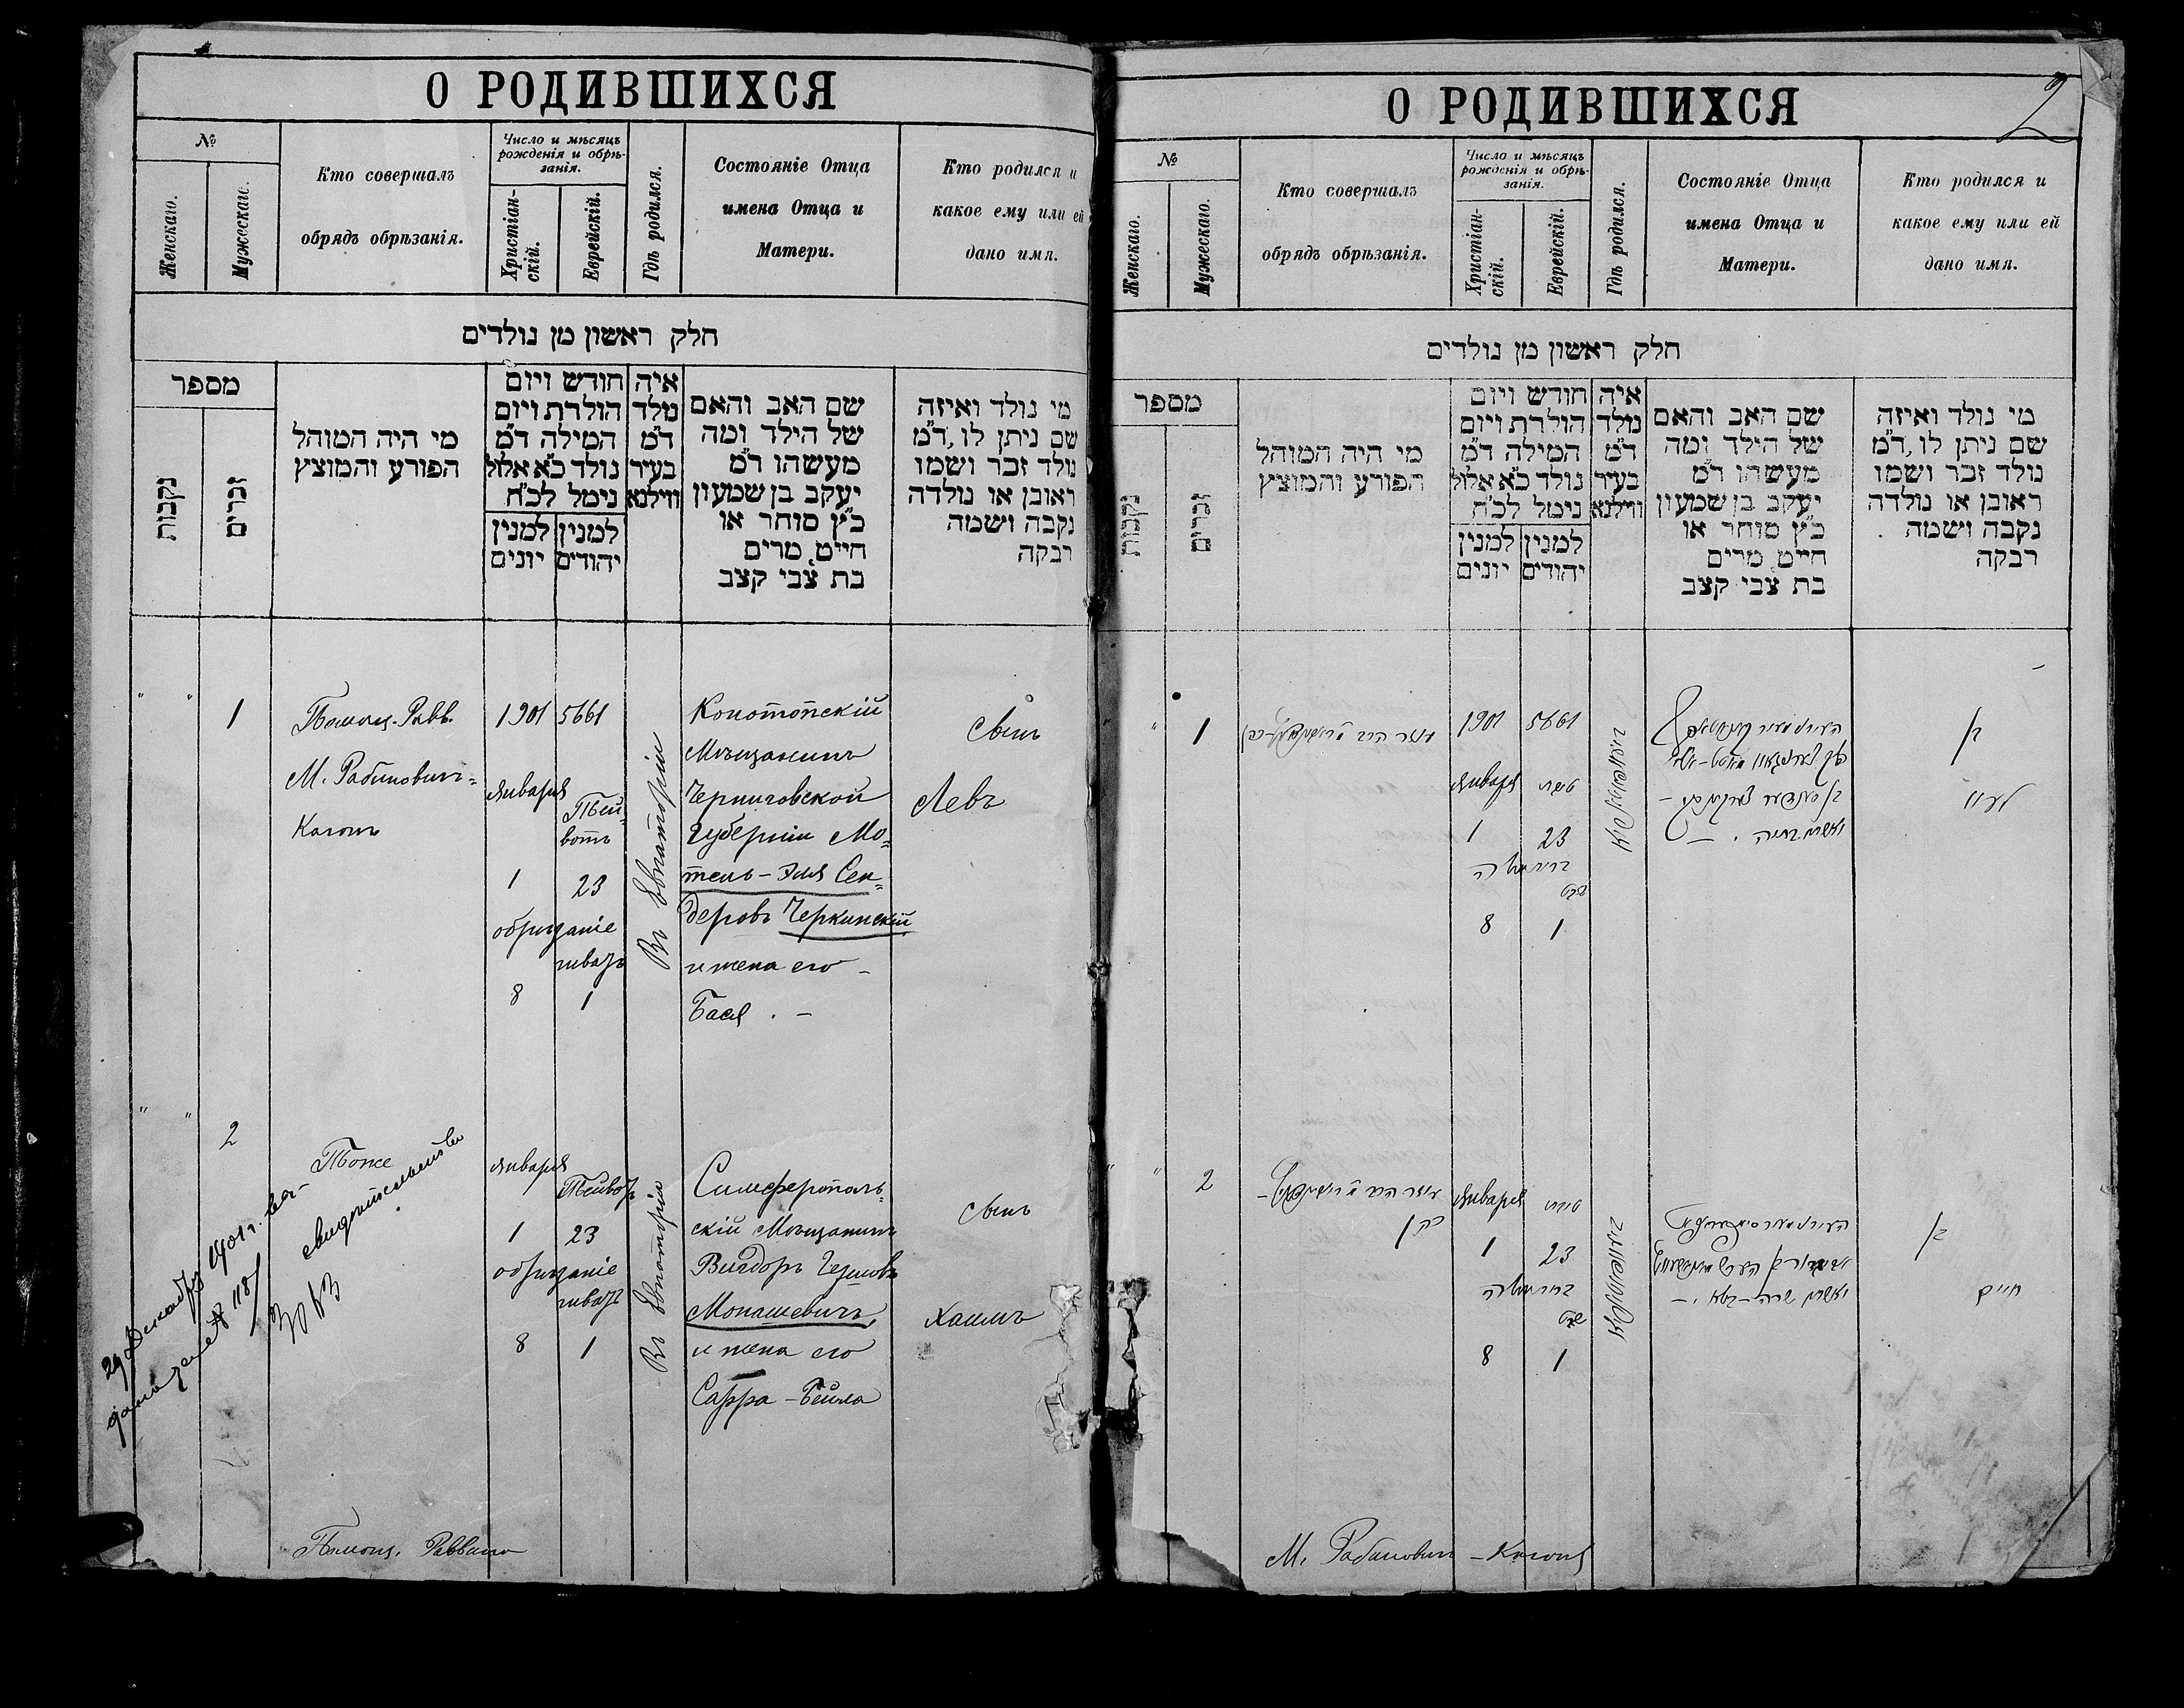 О РОДИВШИХСЯ
№
Женскаго.
Мужескаго.
Кто совершалъ
обрядъ обрѣзанія.
Число и мѣсяцъ
рожденія и обрѣ-
занія.
Христіан-
скій.
Еврейскій.
Гдѣ родился.
Состояніе Отца
имена Отца и
Матери.
Кто родился и
какое ему или ей
дано имя.
חלק ראשון מן נולדים
מספר
נקבות
זכרים
מי היה המוהל
הפורע והמוצץ
חודש ויום
הולדת ויום
המילה ד״מ
נולד כ״א אלול
נימל לכ״ח
למנין
יונים
למנין
יהודים
איה
נולד
ד״מ
בעיר
ווילנא
שם האב והאם
של הילד ומה
מעשהו ד״מ
יעקב בן שמעון
כ״ץ סוחר או
חייט, מרים
בת צבי קצב
מי נולד ואיזה
שם ניתן לו, ד״מ
נולד זכר ושמו
ראובן או נולדה
נקבה ושמה
רבקה
" "
1
Помощ. Равв.
М. Рабинович=
Когонъ
1901
Января
1
обрѣзаніе
8
5661
Тей-
вотъ
23
шватъ
1
Въ Евпаторіи
Конотопскій
Мѣщанинъ
Черниговской
губерніи Мо=
тель-Эля Сен=
деровъ Черкинскій
и жена его -
Бася . -
сынъ
Левъ
" "
2
Тоже
Января
1
обрѣзаніе
8
Тейвотъ
23
шватъ
1
Въ Евпаторіи
Симферополь=
скій Мѣщанинъ
Вигдоръ
Монашевичъ,
и жена его
Сарра-Бейла
сынъ
Хаимъ
29 Декабря 1901 г.
свидѣтельство
№ 118
Помощ. Раввина
О РОДИВШИХСЯ
2
№
Женскаго.
Мужескаго.
Кто совершалъ
обрядъ обрѣзанія.
Число и мѣсяцъ
рожденія и обрѣ-
занія.
Христіан-
скій.
Еврейскій.
Гдѣ родился.
Состояніе Отца
имена Отца и
Матери.
Кто родился и
какое ему или ей
дано имя.
חלק ראשון מן נולדים
מספר
נקבות
זכרים
מי היה המוהל
הפורע והמוצץ
חודש ויום
הולדת ויום
המילה ד״מ
נולד כ״א אלול
נימל לכ״ח
למנין
יונים
למנין
יהודים
איה
נולד
ד״מ
בעיר
ווילנא
שם האב והאם
של הילד ומה
מעשהו ד״מ
יעקב בן שמעון
כ״ץ סוחר או
חייט, מרים
בת צבי קצב
מי נולד ואיזה
שם ניתן לו, ד״מ
נולד זכר ושמו
ראובן או נולדה
נקבה ושמה
רבקה
" "
1
עוזר הרב
1901
Января
1
8
5661
טבת
23
שבט
1
בן
" "
2
עוזר הרב
Января
1
8
טבת
23
שבט
1
ואשתו שרה-
בן
חיים
М. Рабинович-Когонъ